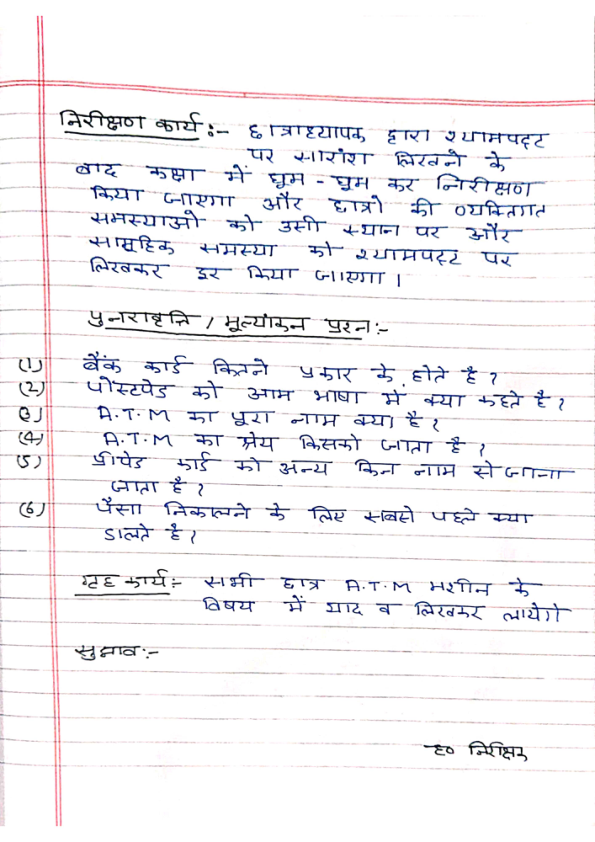 निरीक्षण कार्य :- छात्राध्यापक द्वारा श्यामपट्ट
पर सारांश लिखने के
बाद कक्षा में घूम - घूम कर निरीक्षण
किया जाएगा और छात्रो की व्यक्तिगत
समस्याओ को उसी स्थान पर और
सामूहिक समस्या को श्यामपट्ट पर
लिखकर दूर किया जाएगा ।
पुनरावृत्ति / मूल्यांकन प्रश्न :-
(1) बैंक कार्ड कितने प्रकार के होते है ?
(2) पोस्टपेड को आम भाषा में क्या कहते है ?
(3) A.T.M का पूरा नाम क्या है ?
(4) A.T.M का श्रेय किसको जाता है ?
(5) प्रीपेड कार्ड को अन्य किन नाम से जाना
जाता है ?
(6) पैसा निकालने के लिए सबसे पहले क्या
डालते है ?
गृह कार्य :- सभी छात्र A.T.M मशीन के
विषय में याद व लिखकर लायेगे
सुझाव :-
ह० निरीक्षक